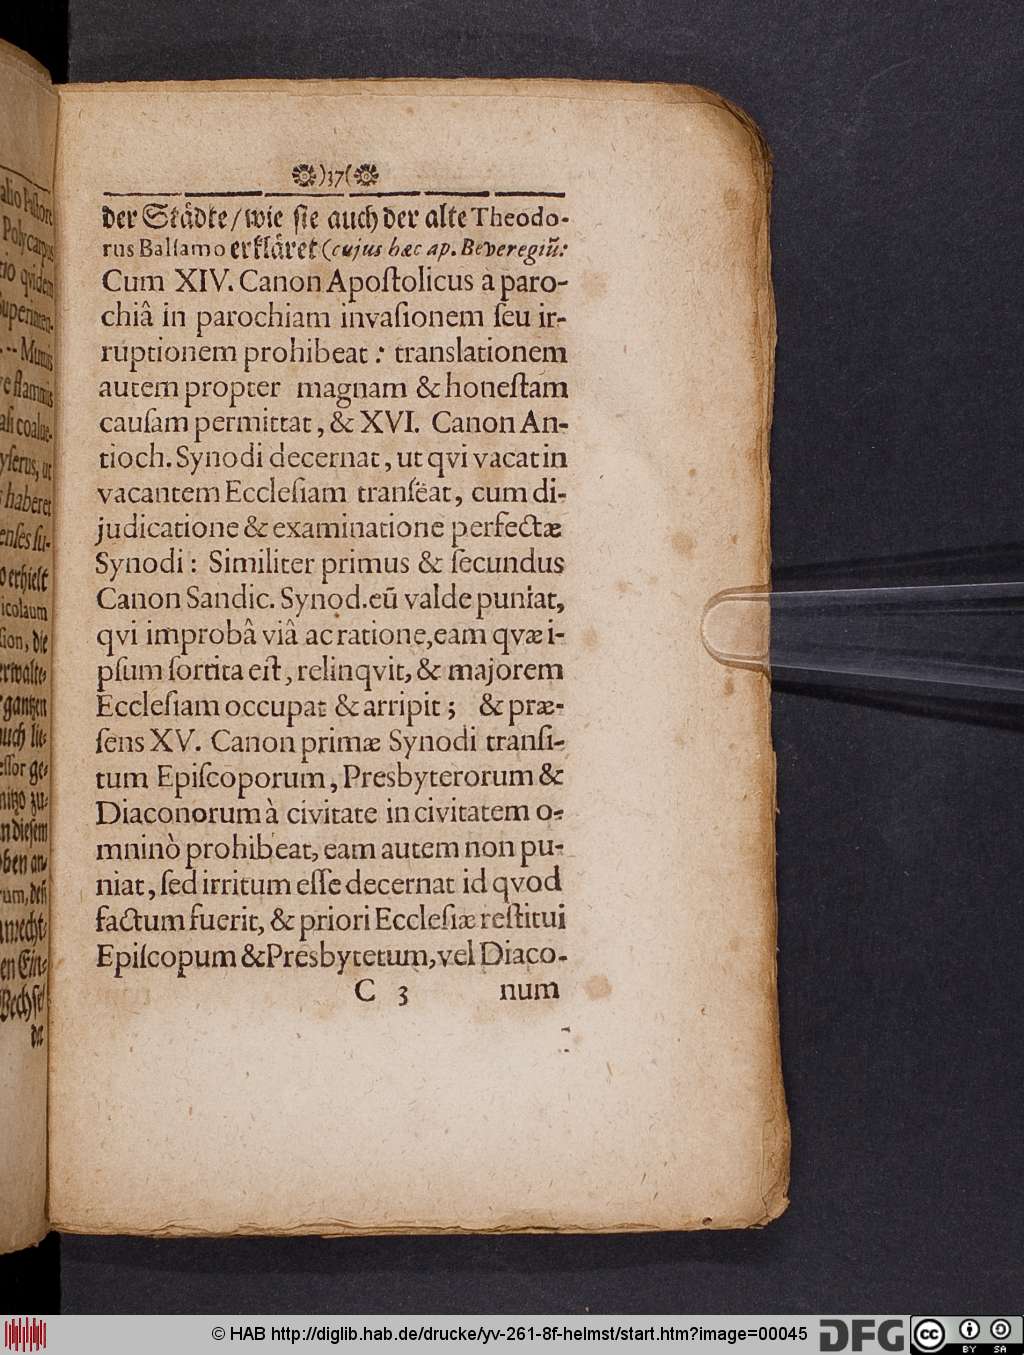 )37(
der Städte/wie sie auch der alte Theodo-
rus Balſamo erkläret (cujus hæc ap. Beveregiũ:
Cum XIV. Canon Apoſtolicus a paro-
chiâ in parochiam invaſionem ſeu ir-
ruptionem prohibeat: translationem
autem propter magnam & honeſtam
cauſam permittat, & XVI. Canon An-
tioch. Synodi decernat, ut qvi vacat in
vacantem Eccleſiam tranſëat, cum di-
judicatione & examinatione perfectæ
Synodi: Similiter primus & ſecundus
Canon Sandic. Synod. eũ valde puniat,
qvi improbâ viâ ac ratione, eam qvæ i-
pſum ſortita eſt, relinqvit, & majorem
Eccleſiam occupat & arripit; & præ-
ſens XV. Canon primæ Synodi tranſi-
tum Epiſcoporum, Presbyterorum &
Diaconorum à civitate in civitatem o-
mninò prohibeat, eam autem non pu-
niat, ſed irritum eſſe decernat id qvod
factum fuerit, & priori Eccleſiæ reſtitui
Epiſcopum & Presbyterum, vel Diaco-
C 3 num
Polycarpus
tio qvidem
-- Munus
yſerus, ut
s haberet
enſes ſu-
o erhielt
icolaum
ſion, die
gantzen
auch lie-
eſſor ge-
n dieſem
oben an-
rum, deß
en Ein-
Wechſel
de
© HAB http://diglib.hab.de/drucke/yv-261-8f-helmst/start.htm?image=00045
DFG
cc
BY SA